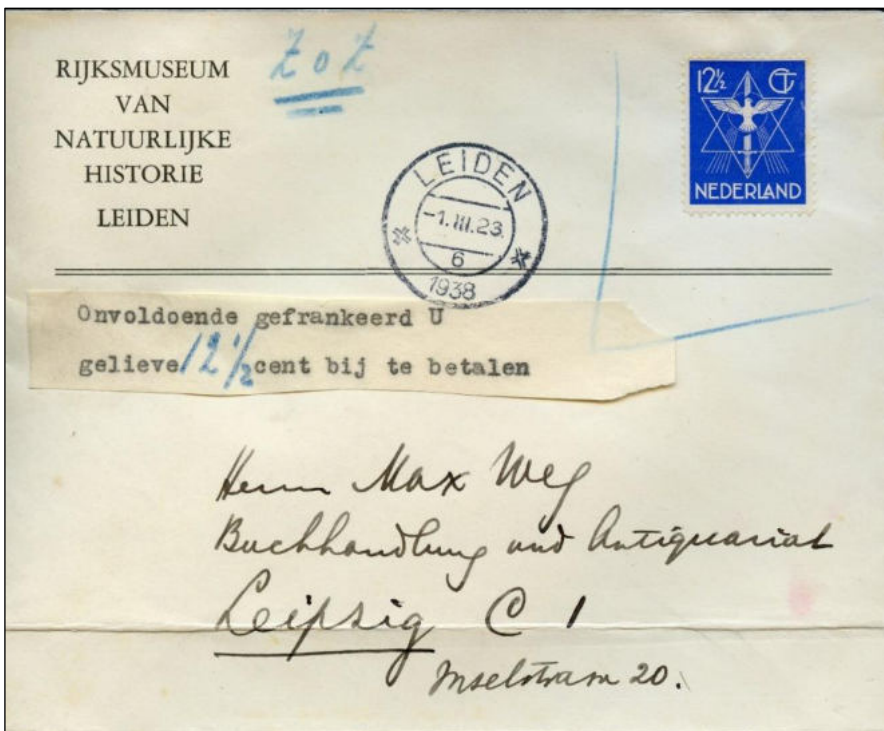 RIJKSMUSEUM
VAN
NATUURLIJKE
HISTORIE
LEIDEN
Z o Z
12½ CT
NEDERLAND
LEIDEN
-1.III.23.
6
1938
Onvoldoende gefrankeerd U
gelieve 12 1/2 cent bij te betalen
Herrn Max Weg
Buchhandlung und Antiquariat
Leipzig C 1
Inselstrasse 20.